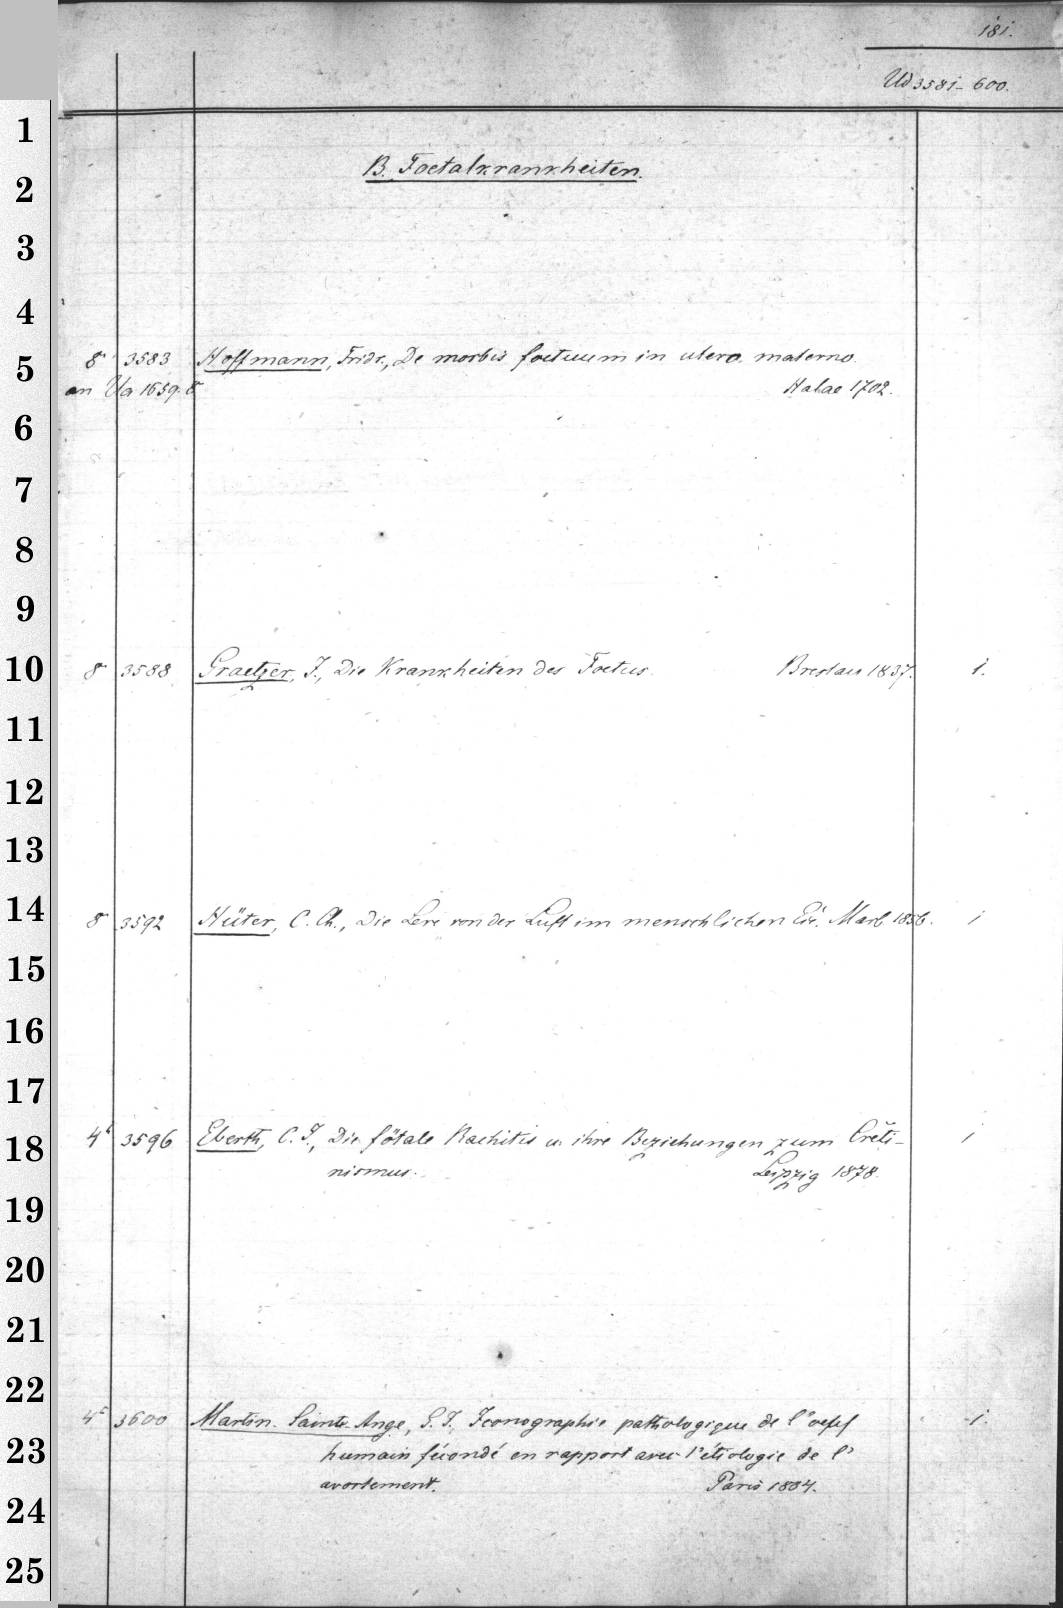 181.
Ud 3581-600.
B. Foetalkrankheiten.
8° 3583 Hoffmann, Fridr., De morbis foetuum in utero materno.
an Ua 1659. 8° Halae 1702.
8° 3588 Graetzer, J., Die Krankheiten des Foetus. Breslau 1837. 1.
8° 3592 Hüter, C. Ch., Die Lere von der Luft im menschlichen Marb. 1856. 1
4° 3596 Eberth, C. J., Die fötale Rachitis u. ihre Beziehungen zum Creti-
nismus. Leipzig 1878. 1
4° 3600 Martin-Saint-Ange, G. J., Iconographie pathologique de l'oeuf 1.
humain fécondé en rapport avec l'étiologie de l'
avortement. Paris 1884.
1
2
3
4
5
6
7
8
9
10
11
12
13
14
15
16
17
18
19
20
21
22
23
24
25